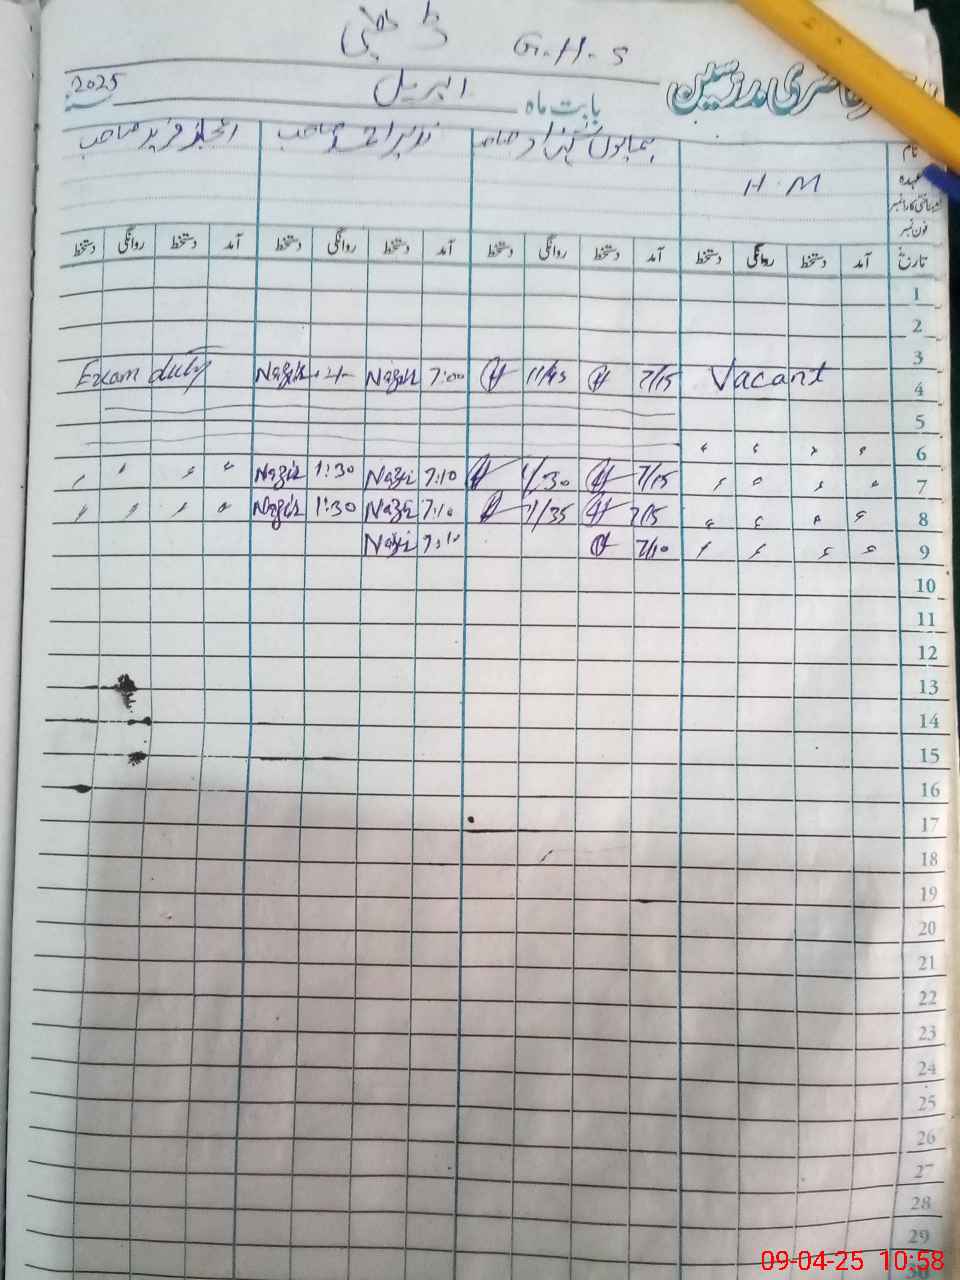 G.H.S
حاضری مدرسین
بابت ماہ اپریل 2025
نام نذیر احمد صاحب اعجاز فرید صاحب
عہدہ H.M
فون نمبر
تاریخ آمد دستخط روانگی دستخط آمد دستخط روانگی دستخط آمد دستخط روانگی دستخط آمد دستخط روانگی دستخط
1
2
3
4 Vacant 7/15 11/45 7:00 Nazir Nazir Exam duty
5
6 〃 〃 〃 〃
7 〃 〃 〃 〃 7/15 1/30 7:10 Nazir 1:30 Nazir 〃 〃 〃 〃
8 〃 〃 〃 〃 7/15 1/35 7:10 Nazir 1:30 Nazir 〃 〃 〃 〃
9 〃 〃 〃 〃 7/10 7:10 Nazir
10
11
12
13
14
15
16
17
18
19
20
21
22
23
24
25
26
27
28
29
30
09-04-25 10:58